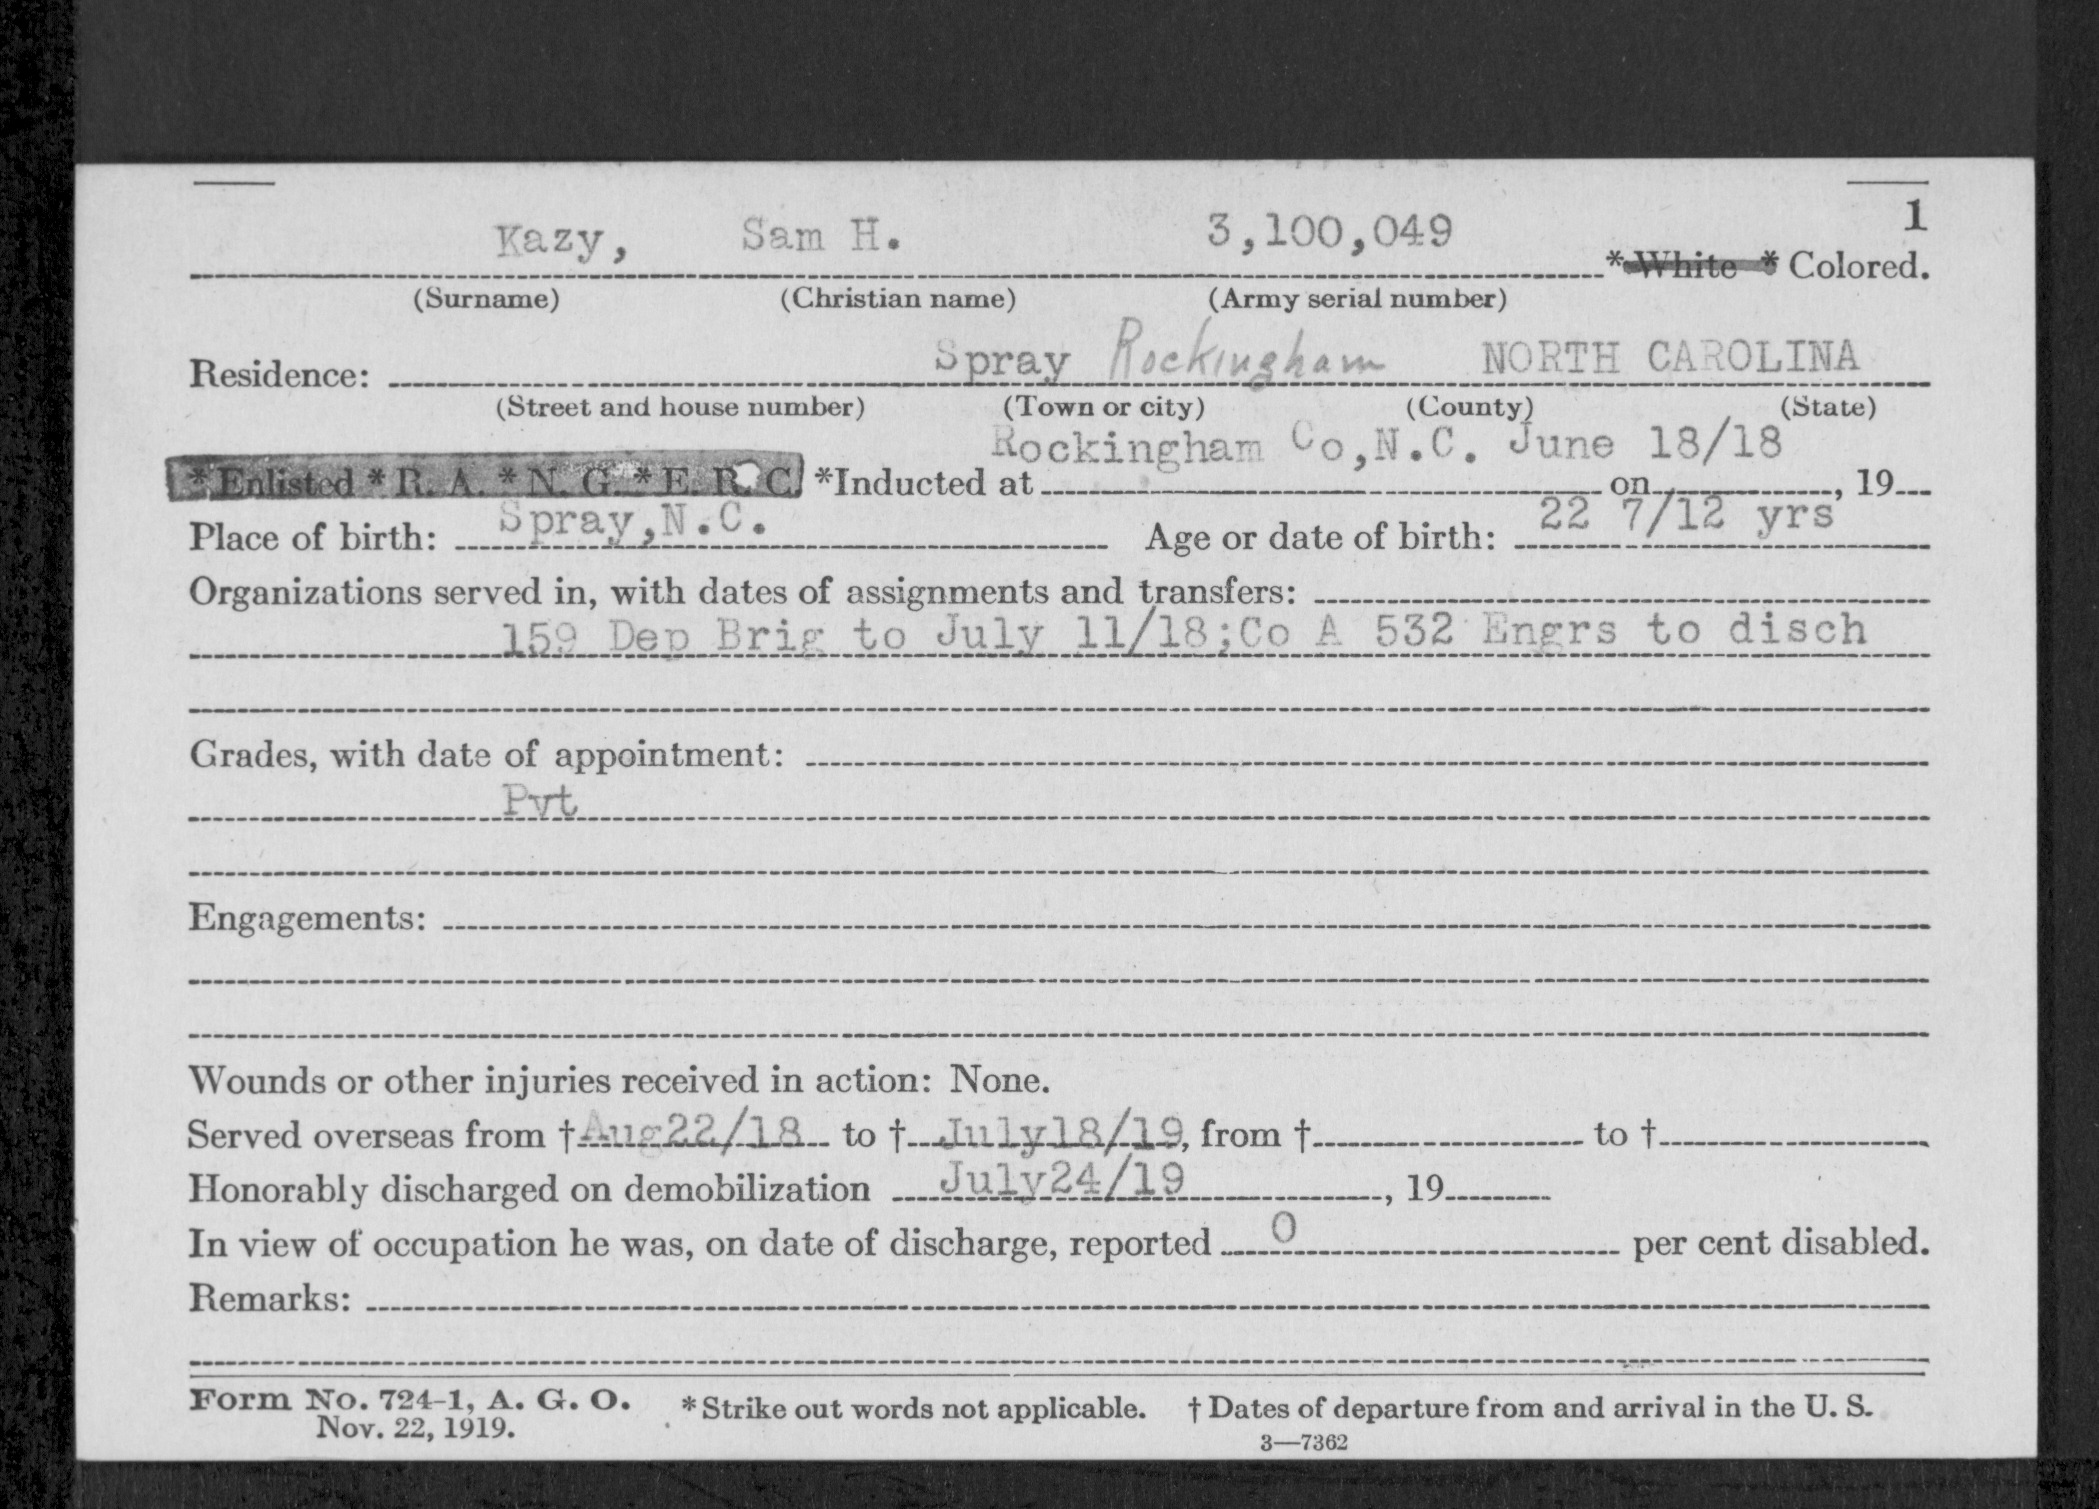 1
Kazy, Sam H. 3,100,049 *White * Colored.
(Surname) (Christian name) (Army serial number)
Residence: Spray Rockingham NORTH CAROLINA
(Street and house number) (Town or city) (County) (State)
Rockingham Co,N.C. June 18/18
*Enlisted *R. A. *N. G. *E. R. C. *Inducted at on , 19
Place of birth: Spray,N.C. Age or date of birth: 22 7/12 yrs
Organizations served in, with dates of assignments and transfers:
159 Dep Brig to July 11/18;Co A 532 Engrs to disch
Grades, with date of appointment:
Pvt
Engagements:
Wounds or other injuries received in action: None.
Served overseas from †Aug22/18 to † July18/19, from † to †
Honorably discharged on demobilization July24/19 , 19
In view of occupation he was, on date of discharge, reported 0 per cent disabled.
Remarks:
Form No. 724-1, A. G. O. *Strike out words not applicable. † Dates of departure from and arrival in the U. S.
Nov. 22, 1919. 3—7362